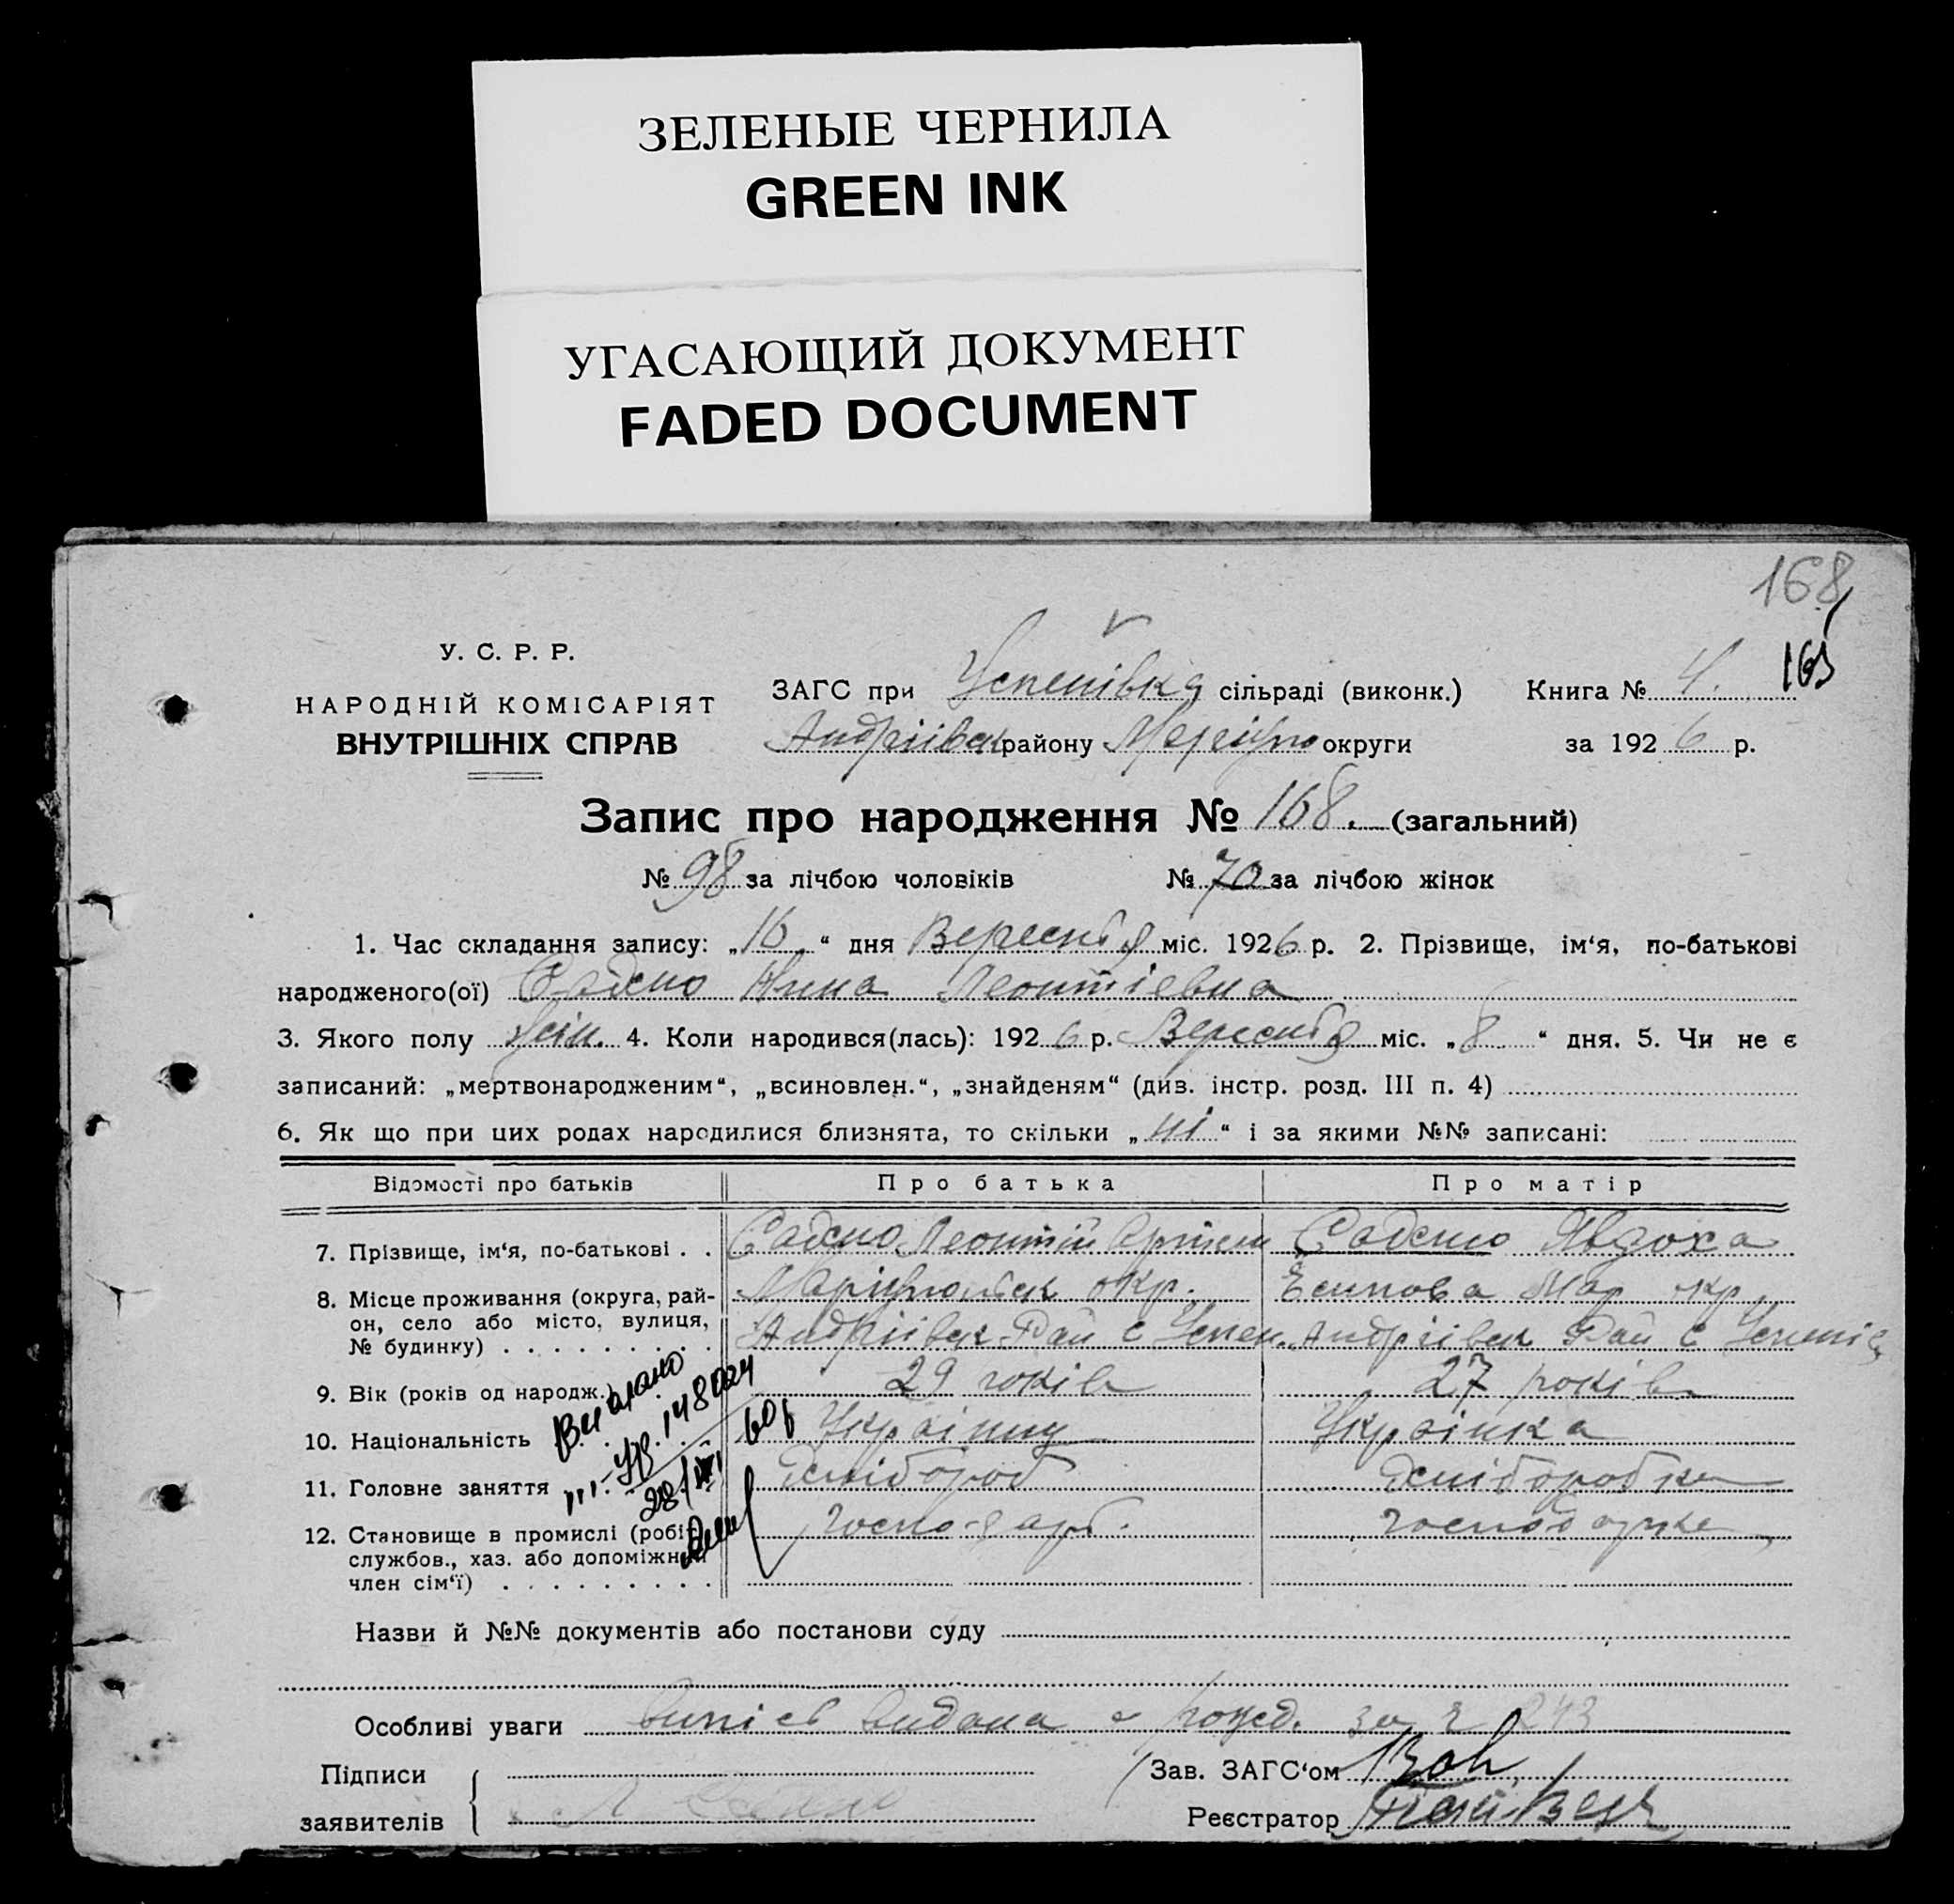 ЗЕЛЕНЫЕ ЧЕРНИЛА
GREEN INK
УГАСАЮЩИЙ ДОКУМЕНТ
FADED DOCUMENT
168
163
У. С. Р. Р.
НАРОДНІЙ КОМІСАРІЯТ
ВНУТРІШНІХ СПРАВ
ЗАГС при Успенівка сільраді (виконк.) Книга № 4.
Андріівськ району Маріупо округи за 1926 р.
Запис про народження № 168. (загальний)
№ 98 за лічбою чоловіків № 70 за лічбою жінок
1. Час складання запису: „16“ дня Вересня міс. 1926 р. 2. Прізвище, ім‘я, по-батькові
народженого(ої) Нина Леонтіевна
3. Якого полу жін. 4. Коли народився(лась): 1926 р. Вересня міс. „8“ дня. 5. Чи не є
записаний: „мертвонародженим“, „всиновлен.“, „знайденям“ (див. інстр. розд. III п. 4)
6. Як що при цих родах народилися близнята, то скільки „ні“ і за якими №№ записані:
Відомості про батьків Про батька Про матір
7. Прізвище, ім‘я, по-батькові . . Леонтій Явдоха
8. Місце проживання (округа, рай- Маріупольськ окр. Есипова Мар окр.
он, село або місто, вулиця, Андріівськ Рай с Успен. Андріівськ Рай с Успенів
№ будинку) . . . . . . . . .
9. Вік (років од народж.) 29 років 27 років
10. Національність Украінець Украінка
11. Головне заняття хлібороб хліборобка
12. Становище в промислі (робіт. господар. господарка
службов., хаз. або допоміжний
член сім‘ї) . . . . . . . . .
Назви й №№ документів або постанови суду
Особливі уваги випись видана рожд. за 243
Підписи Зав. ЗАГС‘ом
заявителів Реєстратор